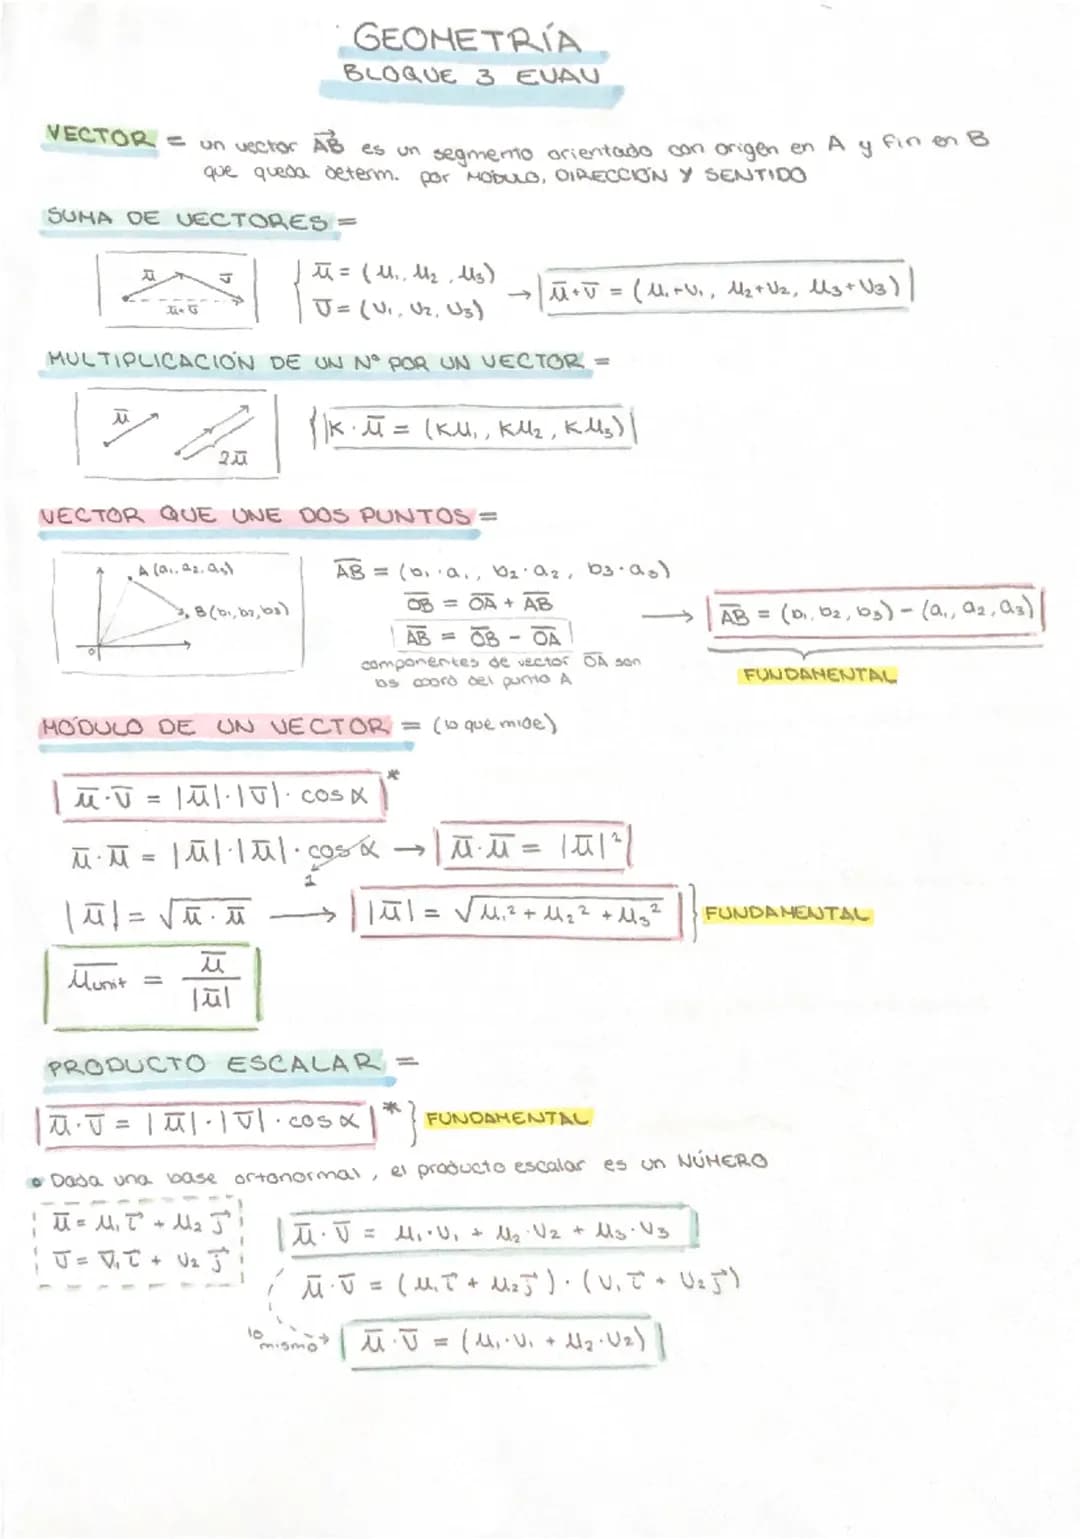 GEOMETRÍA
BLOQUE 3 EVAU
VECTOR = un vector AB⃗ es un segmento orientado con origen en A y fin en B
que queda determ. por MÓDULO, DIRECCIÓN Y SENTIDO
SUMA DE VECTORES =
u̅ v̅ u̅+v̅
u̅ = (u₁, u₂, u₃)
v̅ = (v₁, v₂, v₃)
→ u̅+v̅ = (u₁+v₁, u₂+v₂, u₃+v₃)
MULTIPLICACIÓN DE UN Nº POR UN VECTOR =
u̅ 2u̅
K·u̅ = (Ku₁, Ku₂, Ku₃)
VECTOR QUE UNE DOS PUNTOS =
A (a₁, a₂, a₃)
B (b₁, b₂, b₃)
0
A̅B̅ = (b₁-a₁, b₂-a₂, b₃-a₃)
O̅B̅ = O̅A̅ + A̅B̅
A̅B̅ = O̅B̅ - O̅A̅
componentes de vector O̅A̅ son
las coord del punto A
→ A̅B̅ = (b₁, b₂, b₃) - (a₁, a₂, a₃)
FUNDAMENTAL
MÓDULO DE UN VECTOR = (lo que mide)
u̅·v̅ = |u̅|·|v̅|·cos α *
u̅·u̅ = |u̅|·|u̅|·cos α → u̅·u̅ = |u̅|²
1
|u̅| = √u̅·u̅ → |u̅| = √u₁²+u₂²+u₃² } FUNDAMENTAL
u̅unit = u̅ / |u̅|
PRODUCTO ESCALAR =
u̅·v̅ = |u̅|·|v̅|·cos α * } FUNDAMENTAL
• Dada una base ortonormal, el producto escalar es un NÚMERO
u̅ = u₁i⃗ + u₂j⃗
v̅ = v₁i⃗ + v₂j⃗
u̅·v̅ = u₁·v₁ + u₂·v₂ + u₃·v₃
u̅·v̅ = (u₁i⃗ + u₂j⃗)·(v₁i⃗ + v₂j⃗)
lo mismo → u̅·v̅ = (u₁·v₁ + u₂·v₂)